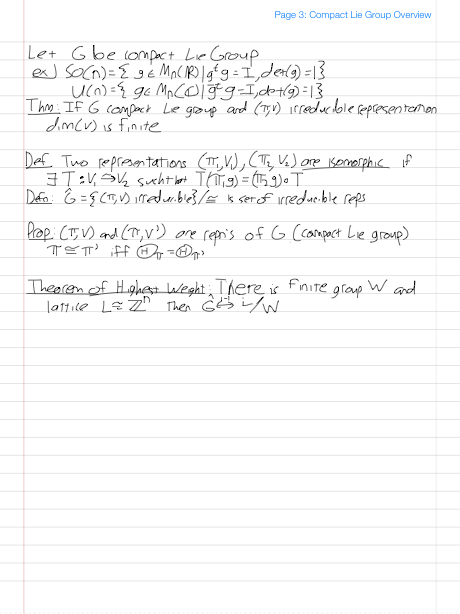 Page 3: Compact Lie Group Overview
Let G be compact Lie Group
ex) SO(n)={ g ∈ Mn(ℝ) | gᵗg = I, det(g)=1}
U(n)={ g ∈ Mn(ℂ) | g̅ᵗg = I, det(g)=1}
Thm: If G compact Lie group and (π,V) irreducible representation
dim(V) is finite
Def Two representations (π₁,V₁), (π₂,V₂) are isomorphic if
∃ T: V₁ → V₂ such that T(π₁g)=(π₂g)∘T
Defn: Ĝ = {(π,V) irreducible}/≅ is set of irreducible reps
Prop: (π,V) and (π',V') are repn's of G (compact Lie group)
π ≅ π' iff Ⓗπ = Ⓗπ'
Theorem of Highest Weight: There is finite group W and
lattice L ≅ ℤⁿ Then Ĝ ↔ L/W